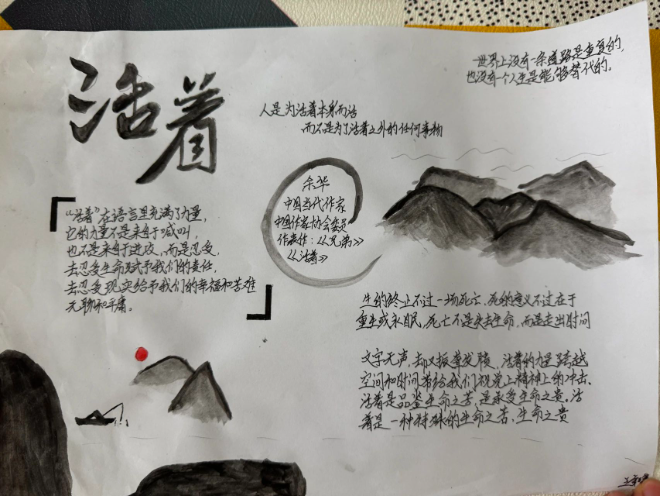 活着
世界上没有一条道路是重复的
也没有个人生是能够替代的。
人是为活着本身而活
而不是为了活着之外的任何事物
余华
中国当代作家
中国作家协会委员
代表作:《兄弟》
《活着》
"活着"在语言里充满了力量,
它的力量不是来自于喊叫,
也不是来自于进攻,而是忍受,
去忍受生命赋予我们的责任,
去忍受现实给予我们的幸福和苦难
无聊和平庸。
生的终止不过一场死亡,死的意义不过在于
重生或永眠,死亡不是失去生命,而是走出时间
文字无声,却又振聋发聩,活着的力量跨越
空间和时间带给我们视觉上精神上的冲击,
活着是品鉴生命之苦,是承受生命之贵,活
着是一种特殊的生命之苦、生命之贵